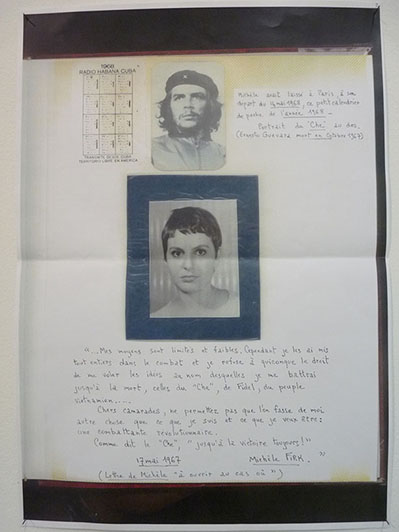 1968
RADIO HABANA CUBA
TRANSMITE DESDE CUBA
TERRITORIO LIBRE EN AMERICA
Michèle avait laissé à Paris, à son
départ du 14 mai 1968, ce petit calendrier
de poche de l'année 1968 -
Portrait du "Che" au dos.
(Ernesto Guevara mort en Octobre 1967)
"...Mes moyens sont limités et faibles. Cependant je les ai mis
tout entiers dans le combat et je refuse à quiconque le droit
de me voler les idées au nom desquelles je me battrai
jusqu'à la mort, celles du "Che", de Fidel, du peuple
vietnamien.....
Chers camarades, ne permettez pas que l'on fasse de moi
autre chose que ce que je suis et ce que je veux être:
une combattante révolutionnaire.
Comme dit le "Che", "jusqu'à la victoire toujours!"
17 mai 1967 Michèle FIRK "
(Lettre de Michèle "à ouvrir au cas où")